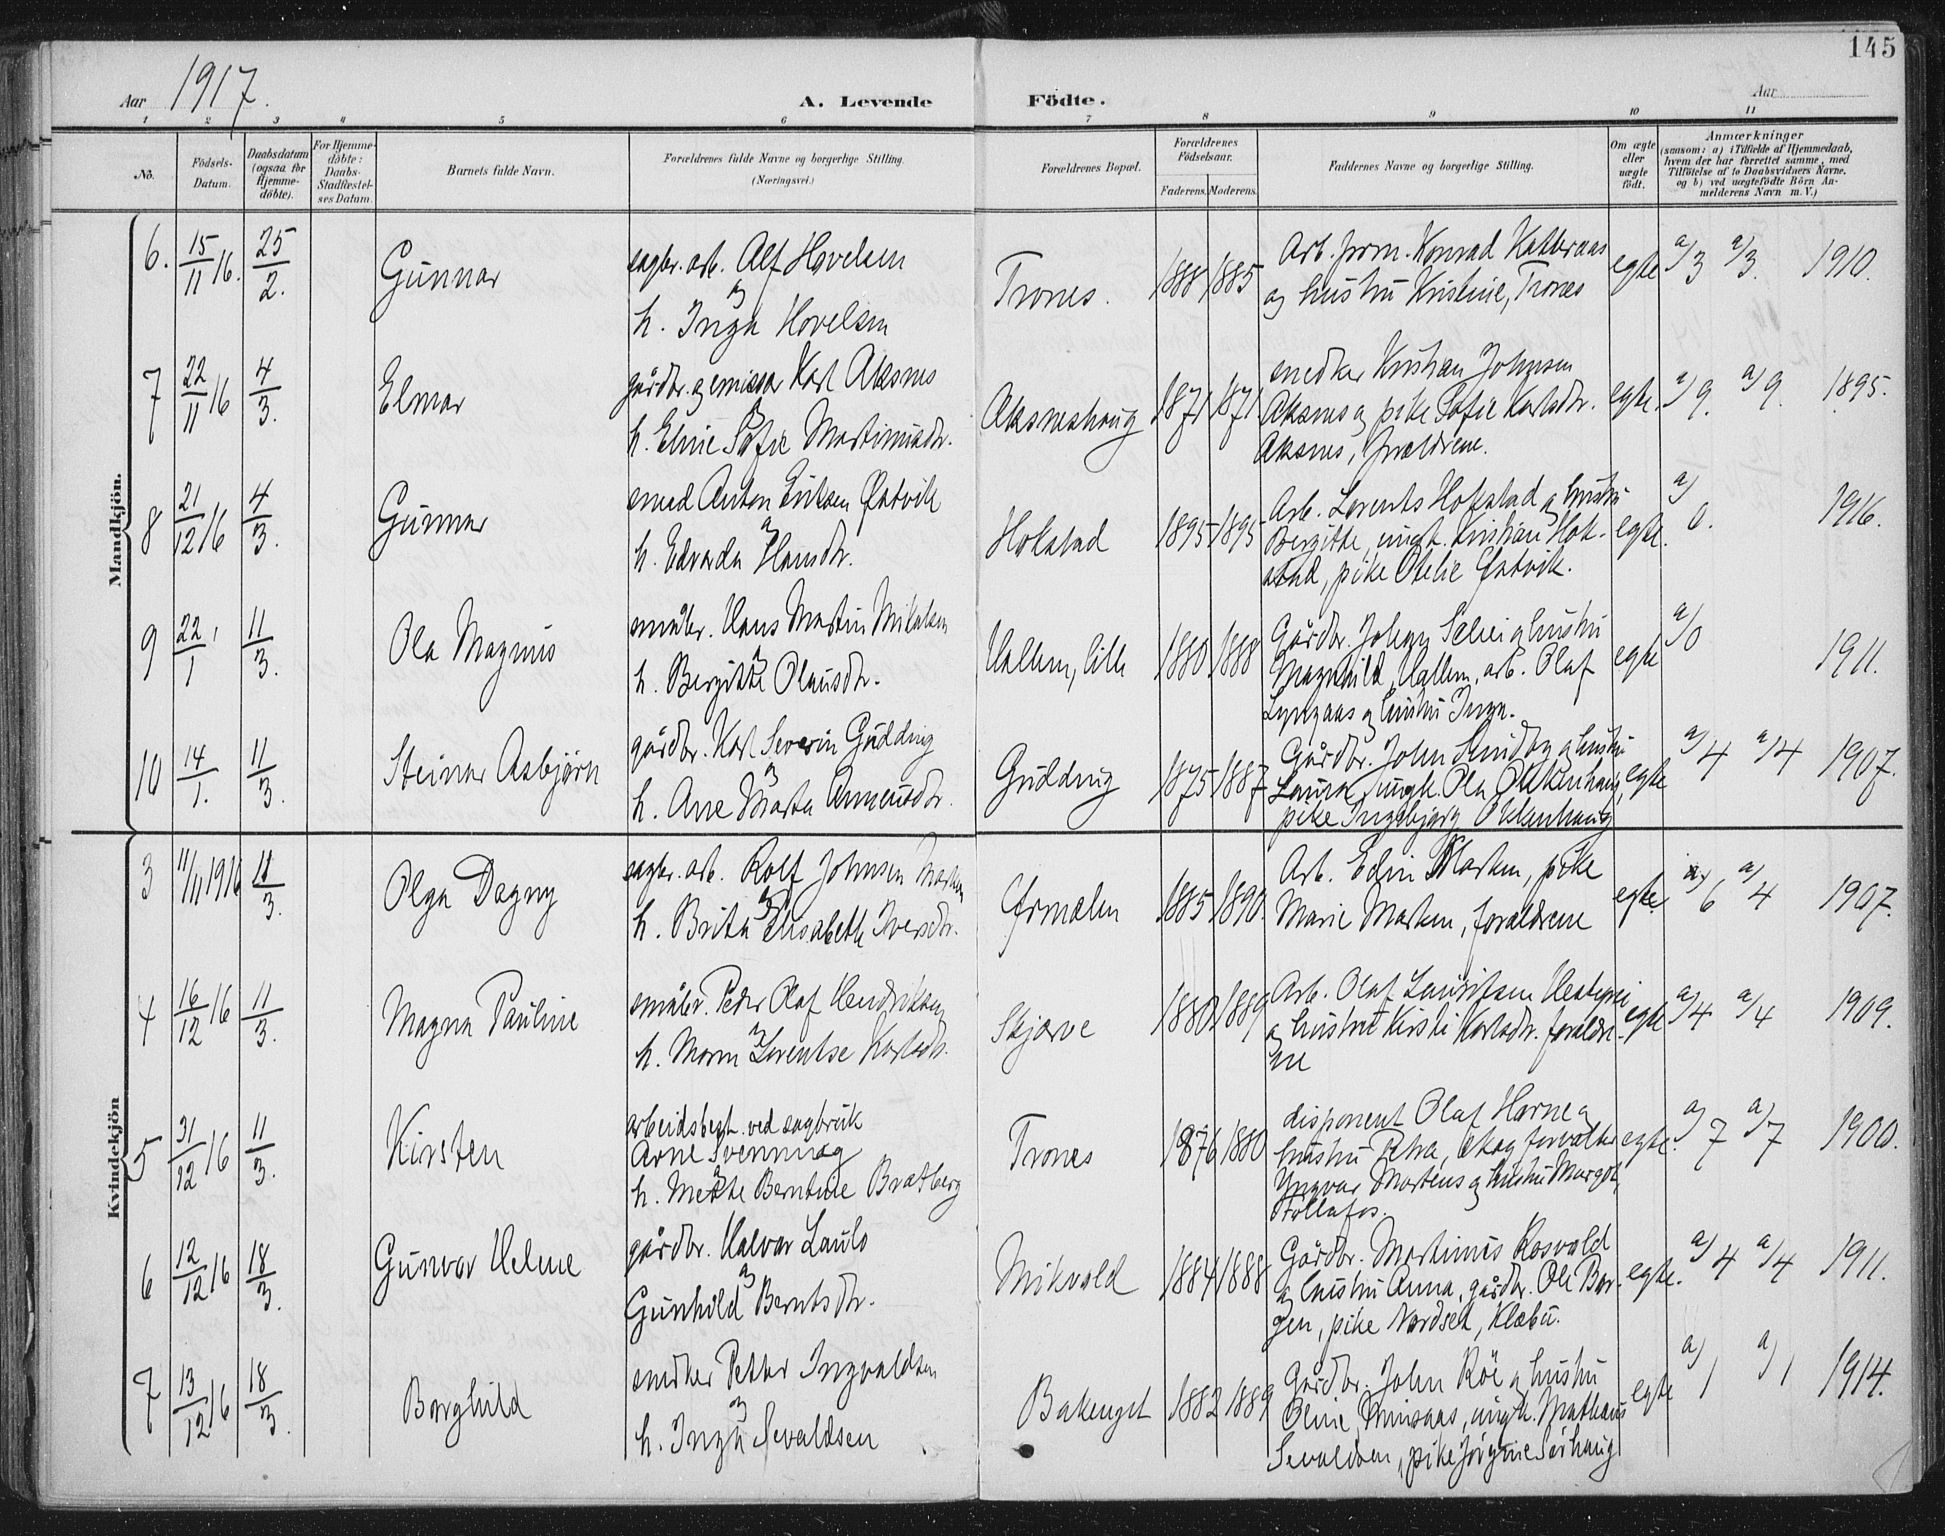 145
Aar 1917.
A. Levende Födte.
Aar
1 2 3 4 5 6 7 8 9 10 11
No.
Födsels-Datum.
Daabsdatum (ogsaa for Hjemme-döbte).
For Hjemme-döbte: Daabs-Stadfæstel-ses Datum.
Barnets fulde Navn.
Forældrenes fulde Navne og borgerlige Stilling.
(Næringsvei.)
Forældrenes Bopæl.
Forældrenes Födselsaar.
Faderens. Moderens.
Faddernes Navne og borgerlige Stilling.
Om ægte eller uægte födt.
Anmærkninger
(saasom: a) i Tilfælde af Hjemmedaab,
hvem der har forrettet samme, med
Tilföielse af to Daabsvidners Navne,
og b) ved uægtefödte Börn An-
melderens Navn m. V.)
Mandkjön.
6. 15/11 16. 25/2. Gunnar
sagbr. arb. Alf Hovelsen
og
h. Inga Hovelsen
Trones. 1888 1885
Arb. form. Konrad
og hustru Kristine, Trones
egte a/3 a/3. 1910.
7 22/11 16 4/3. Elmar
gårdbr. og emissær Karl Aksnes
og
h. Eline Sofie Martinusdr.
Aksneshaug 1871 1871
snedker Kristian Johnsen
Aksnes og pike Sofie Karlsdr.
Aksnes, forældrene.
egte. a/9. a/9. 1895.
8 21/12 16 4/3. Gunnar
smed Anton Østvik
og
h. Edvarda Hansdr.
Holstad 1895 1895
Arb. Lorents Hofstad og hustru
Bergitte, ungk. Kristian Hof-
stad, pike Otelie Østvik.
egte. a/0. 1916.
9 22/1 11/3. Ola Magnus
småbr. Hans Martin Mikalsen
og
h. Bergitte Olausdr.
Hallem, lille 1880 1888
Gårdbr. Johan og hustru
Magnhild, Hallem, arb. Olaf
Lyngaas og hustru Inga.
egte a/0 1911.
10 14/1. 11/3. Steinar Asbjørn
gårdbr. Karl Severin Gudding
og
h. Ane Marta
Gudding 1875 1887
Gårdbr. John og hustru
Laura, ungk. Ola Oklanhaug,
pike Ingebjørg Oklanhaug
egte a/4 a/4 1907.
Kvindekjön
3 11/11 1916 11/3. Olga Dagny
sagbr. arb. Rolf Johnsen Marken
og
h. Brita Elisabeth Iversdr.
Ørmælen 1885 1890.
Arb. Edvin Marken, pike
Marie Marken, forældrene
egte. a/6 a/4 1907.
4 16/12 16 11/3. Magna Pauline
småbr. Peder Olaf Hendriksen
og
h. Maren Lorentse Karlsdr.
Skjørve 1880 1889
Arb. Olaf Lauritsen
og hustru Kirsti Karlsdr. forældre-
ne
egte a/4 a/4 1909.
5 31/12 16 11/3. Kirsten
arbeidsbest. ved sagbruk
Arne
og
h. Mette Berntine Bratberg
Trones 1876 1880
disponent Olaf Horne og
hustru Petra, skogforvalter
Yngvar Martens og hustru Margot,
egte. a/7 a/7 1900.
6 12/12 16 18/3. Gunvor Helene
gårdbr. Halvor Laulo
og
Gunhild Berntsdr.
Mikvold 1884 1888
Gårdbr. Martinus Rosvold
og hustru Anna, gårdbr. Ole Bor-
gen, pike Nordset, Klæbu.
egte. a/4 a/4 1911.
7 13/12 16 18/3. Borghild
snedker Petter Ingvaldsen
og
h. Inga Sevaldsen
Bakenget 1882 1889
Gårdbr. John Röe og hustru
Oline ungk. Mathæus
Sevaldsen, pike Jörgine Sörhaug
egte a/1 a/1 1914.